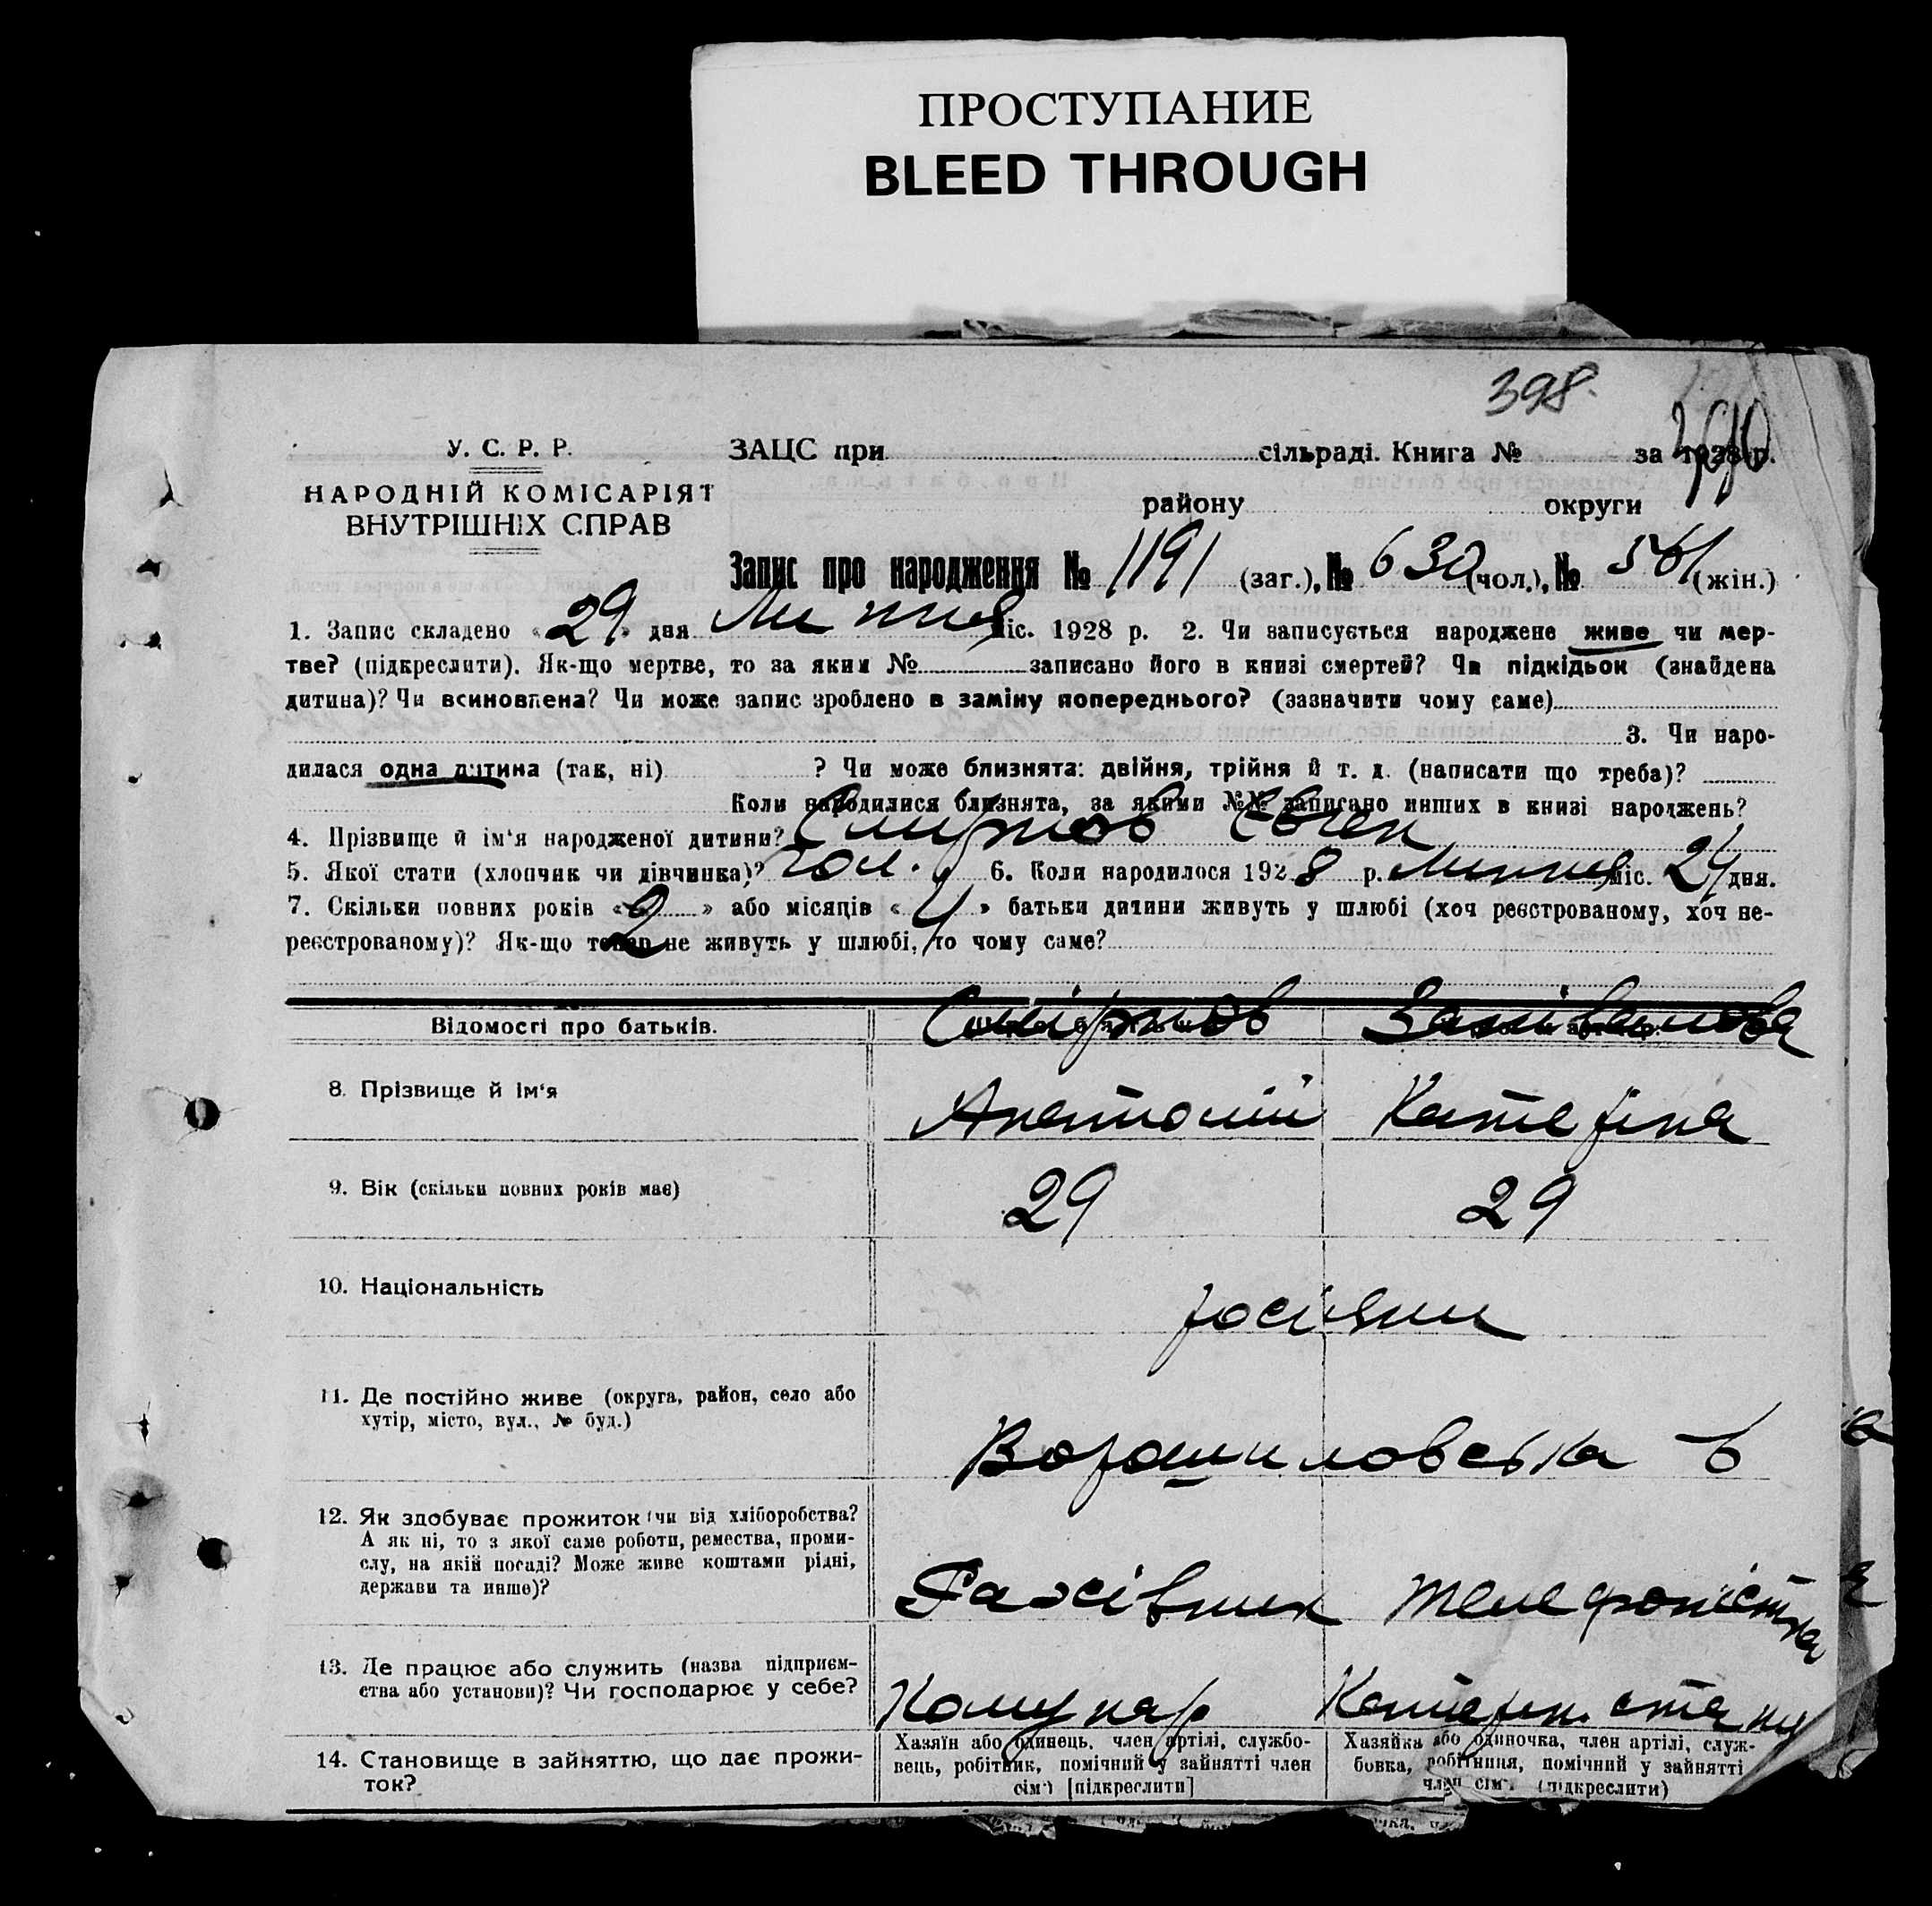 ПРОСТУПАНИЕ
BLEED THROUGH
398.
У. С. Р. Р.
НАРОДНІЙ КОМІСАРІЯТ
ВНУТРІШНІХ СПРАВ
ЗАЦС при сільраді. Книга № за 1928 р.
району округи
Запис про народження № 1191 (заг.), № 630 (чол.), № 561 (жін.)
1. Запис складено «29» дня Липня міс. 1928 р. 2. Чи записується народжене живе чи мер-
тве? (підкреслити). Як-що мертве, то за яким № записано його в книзі смертей? Чи підкідьок (знайдена
дитина)? Чи всиновлена? Чи може запис зроблено в заміну попереднього? (зазначити чому саме)
3. Чи наро-
дилася одна дитина (так, ні) ? Чи може близнята: двійня, трійня й т. д. (написати що треба)?
Коли народилися близнята, за якими №№ записано инших в книзі народжень?
4. Прізвище й ім'я народженої дитини? Смирнов Євген
5. Якої стати (хлопчик чи дівчинка)? чол. 6. Коли народилося 1928 р. Липня міс. 24 дня.
7. Скільки повних років «2» або місяців «4» батьки дитини живуть у шлюбі (хоч реєстрованому, хоч не-
реєстрованому)? Як-що тепер не живуть у шлюбі, то чому саме?
Відомості про батьків. Смірнов
8. Прізвище й ім'я Анатолій Катеріна
9. Вік (скільки повних років має) 29 29
10. Національність росіяни
11. Де постійно живе (округа, район, село або
хутір, місто, вул., № буд.)
Ворошиловська 6
12. Як здобуває прожиток (чи від хліборобства?
А як ні, то з якої саме роботи, ремества, проми-
слу, на якій посаді? Може живе коштами рідні,
держави та инше)?
Фахівник телефоністка
13. Де працює або служить (назва підприєм-
ства або установи)? Чи господарює у себе?
Комунар Катерин. станц
14. Становище в зайняттю, що дає прожи-
ток?
Хазяїн або одинець, член артілі, службо-
вець, робітник, помічний у зайнятті член
сім'ї [підкреслити]
Хазяйка або одиночка, член артілі, служ-
бовка, робітниця, помічний у зайнятті
член сім'ї (підкреслити)